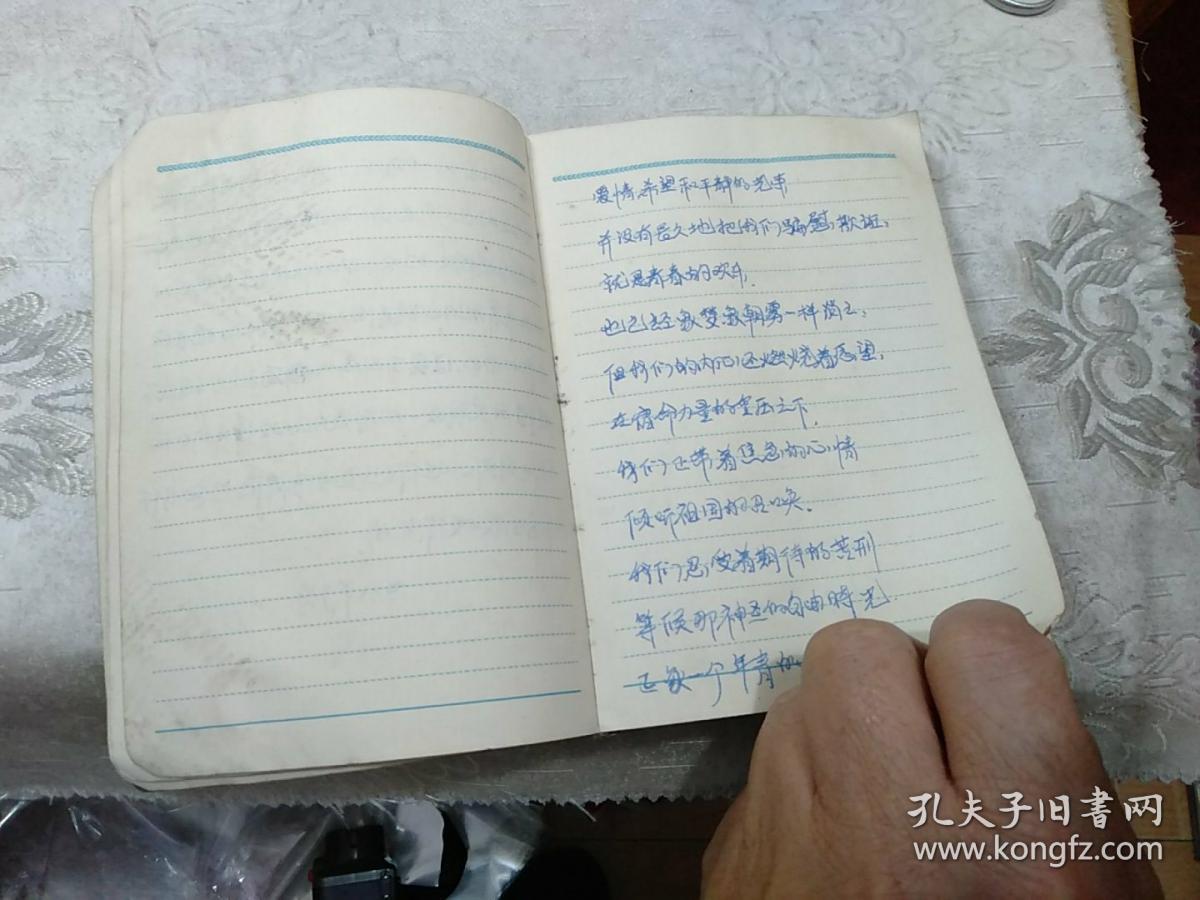 爱情、希望和平静的光荣
并没有长久地把我们骗慰,欺诳,
就是青春的欢乐,
也已经象梦象朝雾一样消亡;
但我们的内心还燃烧着愿望,
在宿命力量的重压之下,
我们正带着焦急的心情
倾听祖国的召唤.
我们忍受着期待的苦刑
等候那神圣的自由时光.
正象一个年青的
孔夫子旧書网
www.kongfz.com